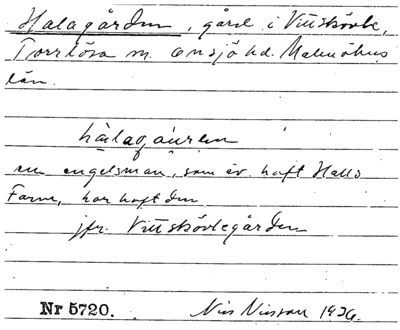 Halagården, gård i Vittskövle,
Torrlösa sn. Onsjö hd. Malmöhus
län.
hālagáuren
en engelsman, som äv. haft Halls
Farm, har haft den
jfr. Vittskövlegården
Nr 5720. Nils Nilsson 1936.